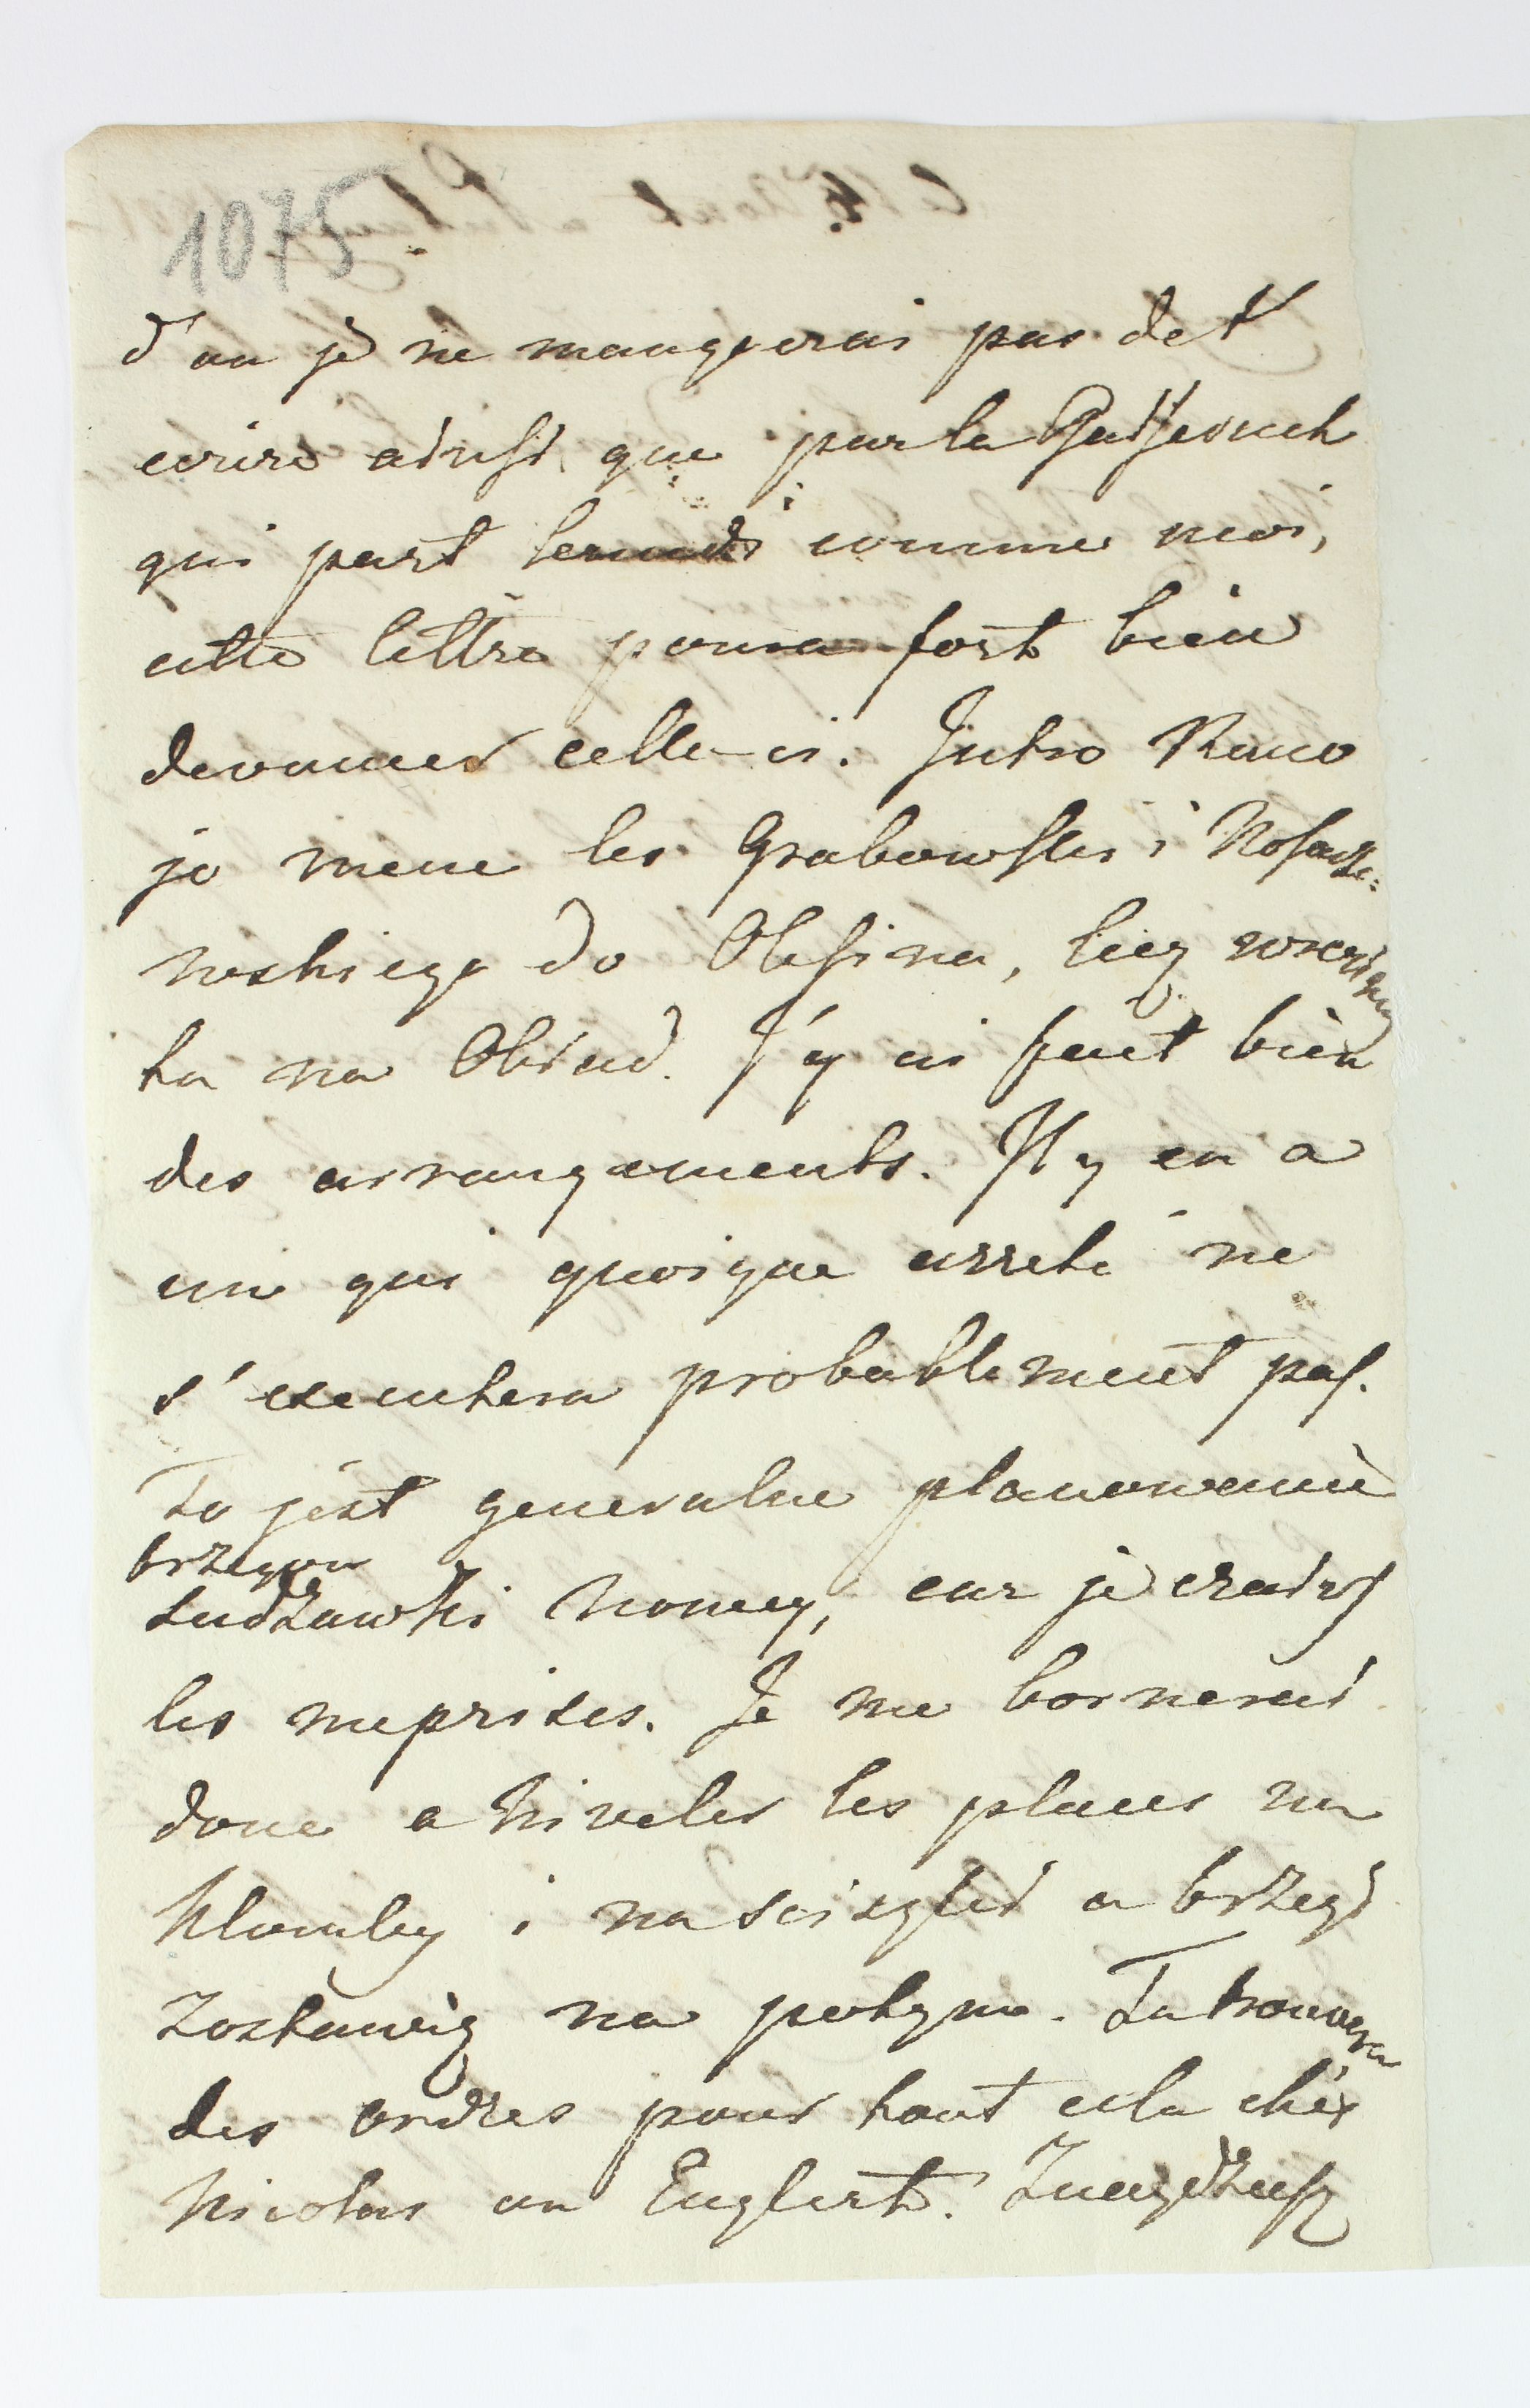 1075
d'ou je ne manquerai pas de t'
ecrire ainsi que par la
qui part lundi comme moi,
cette lettre pourra fort bien
devancer celle-ci. Jutro Rano
je mene les Grabowski i
do Olesina,
ta na Obiad. J'y ai fait bien
des arrangements. Il y en a
un qui quoique arreté ne
s'executera probablement pas.
To jest generalne planowanie
brzegow
Sudzawki Nowey, car je crains
les meprises. Je me bornerai
donc a niveler les places na
Klomby i na a brzegi
Zostawię na potym. Tu trouvera
des ordres pour tout cela chéz
Nicolas ou Englert.